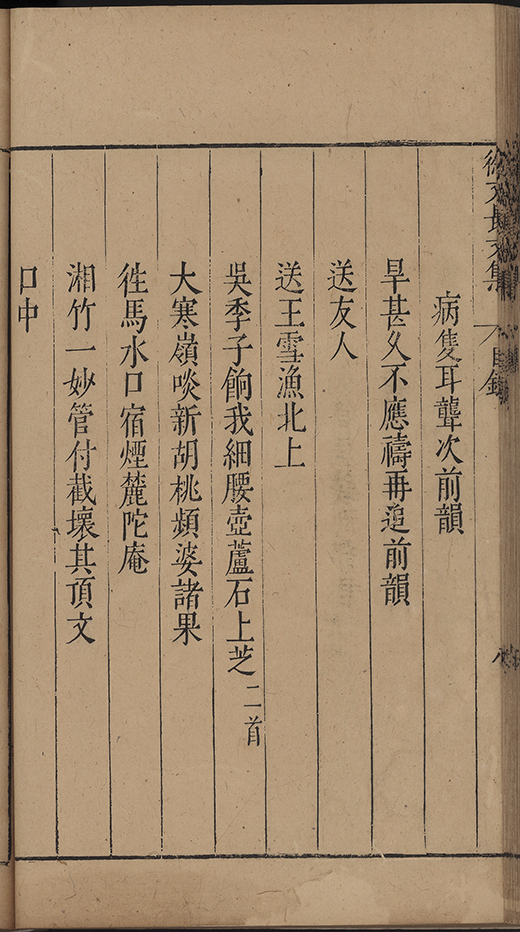 徐文長文集
目錄
八
病隻耳聾次前韻
旱甚久不應禱再追前韻
送友人
送王雪漁北上
吳季子餉我細腰壺蘆石上芝二首
大寒嶺啖新胡桃頻婆諸果
徃馬水口宿煙麓陀庵
湘竹一妙管付截壞其頂文
口中